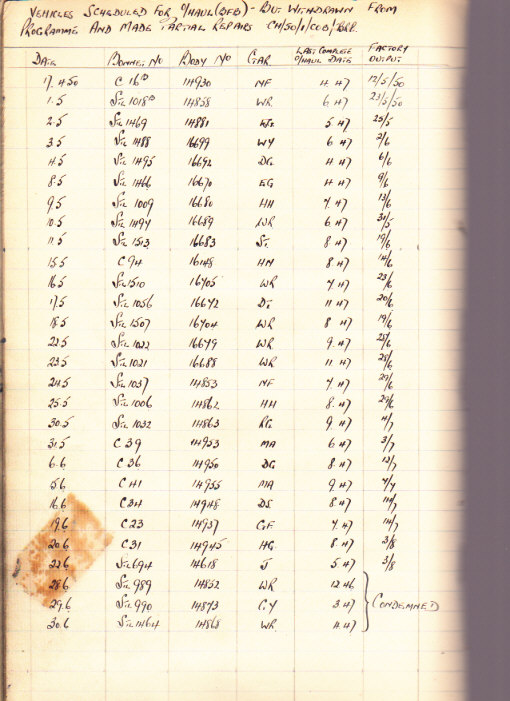 VEHICLES SCHEDULED FOR O/HAUL (DFB) - BUT WITHDRAWN FROM
PROGRAMME AND MADE PARTIAL REPAIRS CH/50/1/COB/
DATE BONNET NO BODY NO GAR. LAST COMPLETE O/HAUL DATE FACTORY OUTPUT
17.4.50 C 16 14930 NF 4.47 12/5/50
1.5 STL 1018 14858 WR 6.47 23/5/50
2.5 STL 1469 14881 5.47 25/5
3.5 STL 1488 16699 WY 6.47 2/6
4.5 STL 1495 16692 DG 4.47 6/6
8.5 STL 1466 16670 EG 4.47 9/6
9.5 STL 1009 16680 HH 7.47 13/6
10.5 STL 1494 16689 WR 6.47 31/5
11.5 STL 1513 16683 St. 8.47 19/6
15.5 C 94 16148 HN 8.47 14/6
16.5 STL 1510 16705 WR 7.47 23/6
17.5 STL 1056 16672 11.47 20/6
18.5 STL 1507 16704 WR 8.47 19/6
22.5 STL 1022 16679 WR 9.47 28/6
23.5 STL 1021 16688 WR 11.47 28/6
24.5 STL 1037 14853 NF 7.47 29/6
25.5 STL 1006 14862 HH 8.47 29/6
30.5 STL 1032 14863 RG 9.47 4/7
31.5 C 39 14953 MA 6.47 3/7
6.6 C 36 14950 DG 8.47 13/7
C 41 14955 MA 9.47 7/7
16.6 C 34 14948 DS 8.47 14/7
19.6 C 23 14937 GF 7.47 14/7
20.6 C 31 14945 HG 8.47 3/8
22.6 STL 694 14618 J 5.47 3/8
28.6 STL 989 14852 WR 12.46
29.6 STL 990 14873 GY 3.47 CONDEMNED
30.6 STL 1464 14868 WR 4.47